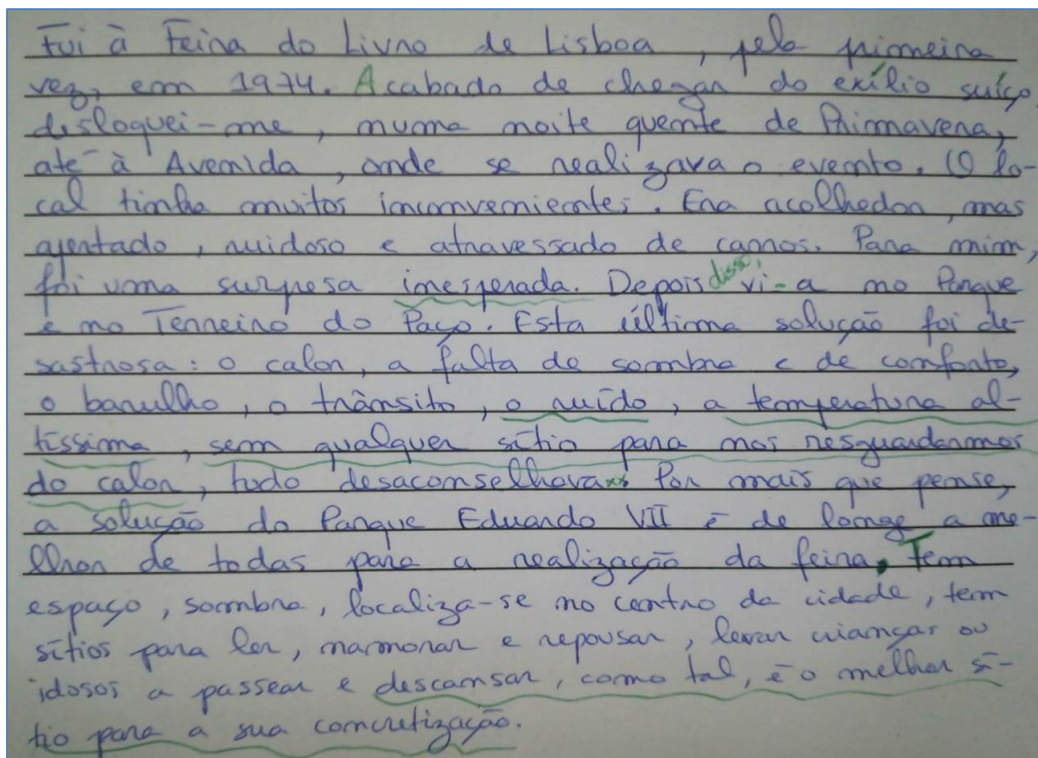 Fui à Feira do Livro de Lisboa, pela primeira
vez, em 1974. Acabado de chegar do exílio suíço
desloquei-me, numa noite quente de Primavera,
até à Avenida, onde se realizava o evento. O lo-
cal tinha muitos inconvenientes. Era acolhedor, mas
apertado, ruidoso e atravessado de carros. Para mim,
foi uma surpresa inesperada. Depois disso, vi-a no Parque
e no Terreiro do Paço. Esta última solução foi de-
sastrosa: o calor, a falta de sombra e de conforto,
o barulho, o trânsito, o ruído, a temperatura al-
tíssima, sem qualquer sítio para nos resguardarmos
do calor, tudo desaconselhava. Por mais que pense,
a solução do Parque Eduardo VII é de longe a me-
lhor de todas para a realização da feira. Tem
espaço, sombra, localiza-se no centro da cidade, tem
sítios para ler, namorar e repousar, levar crianças ou
idosos a passear e descansar, como tal, é o melhor sí-
tio para a sua concretização.